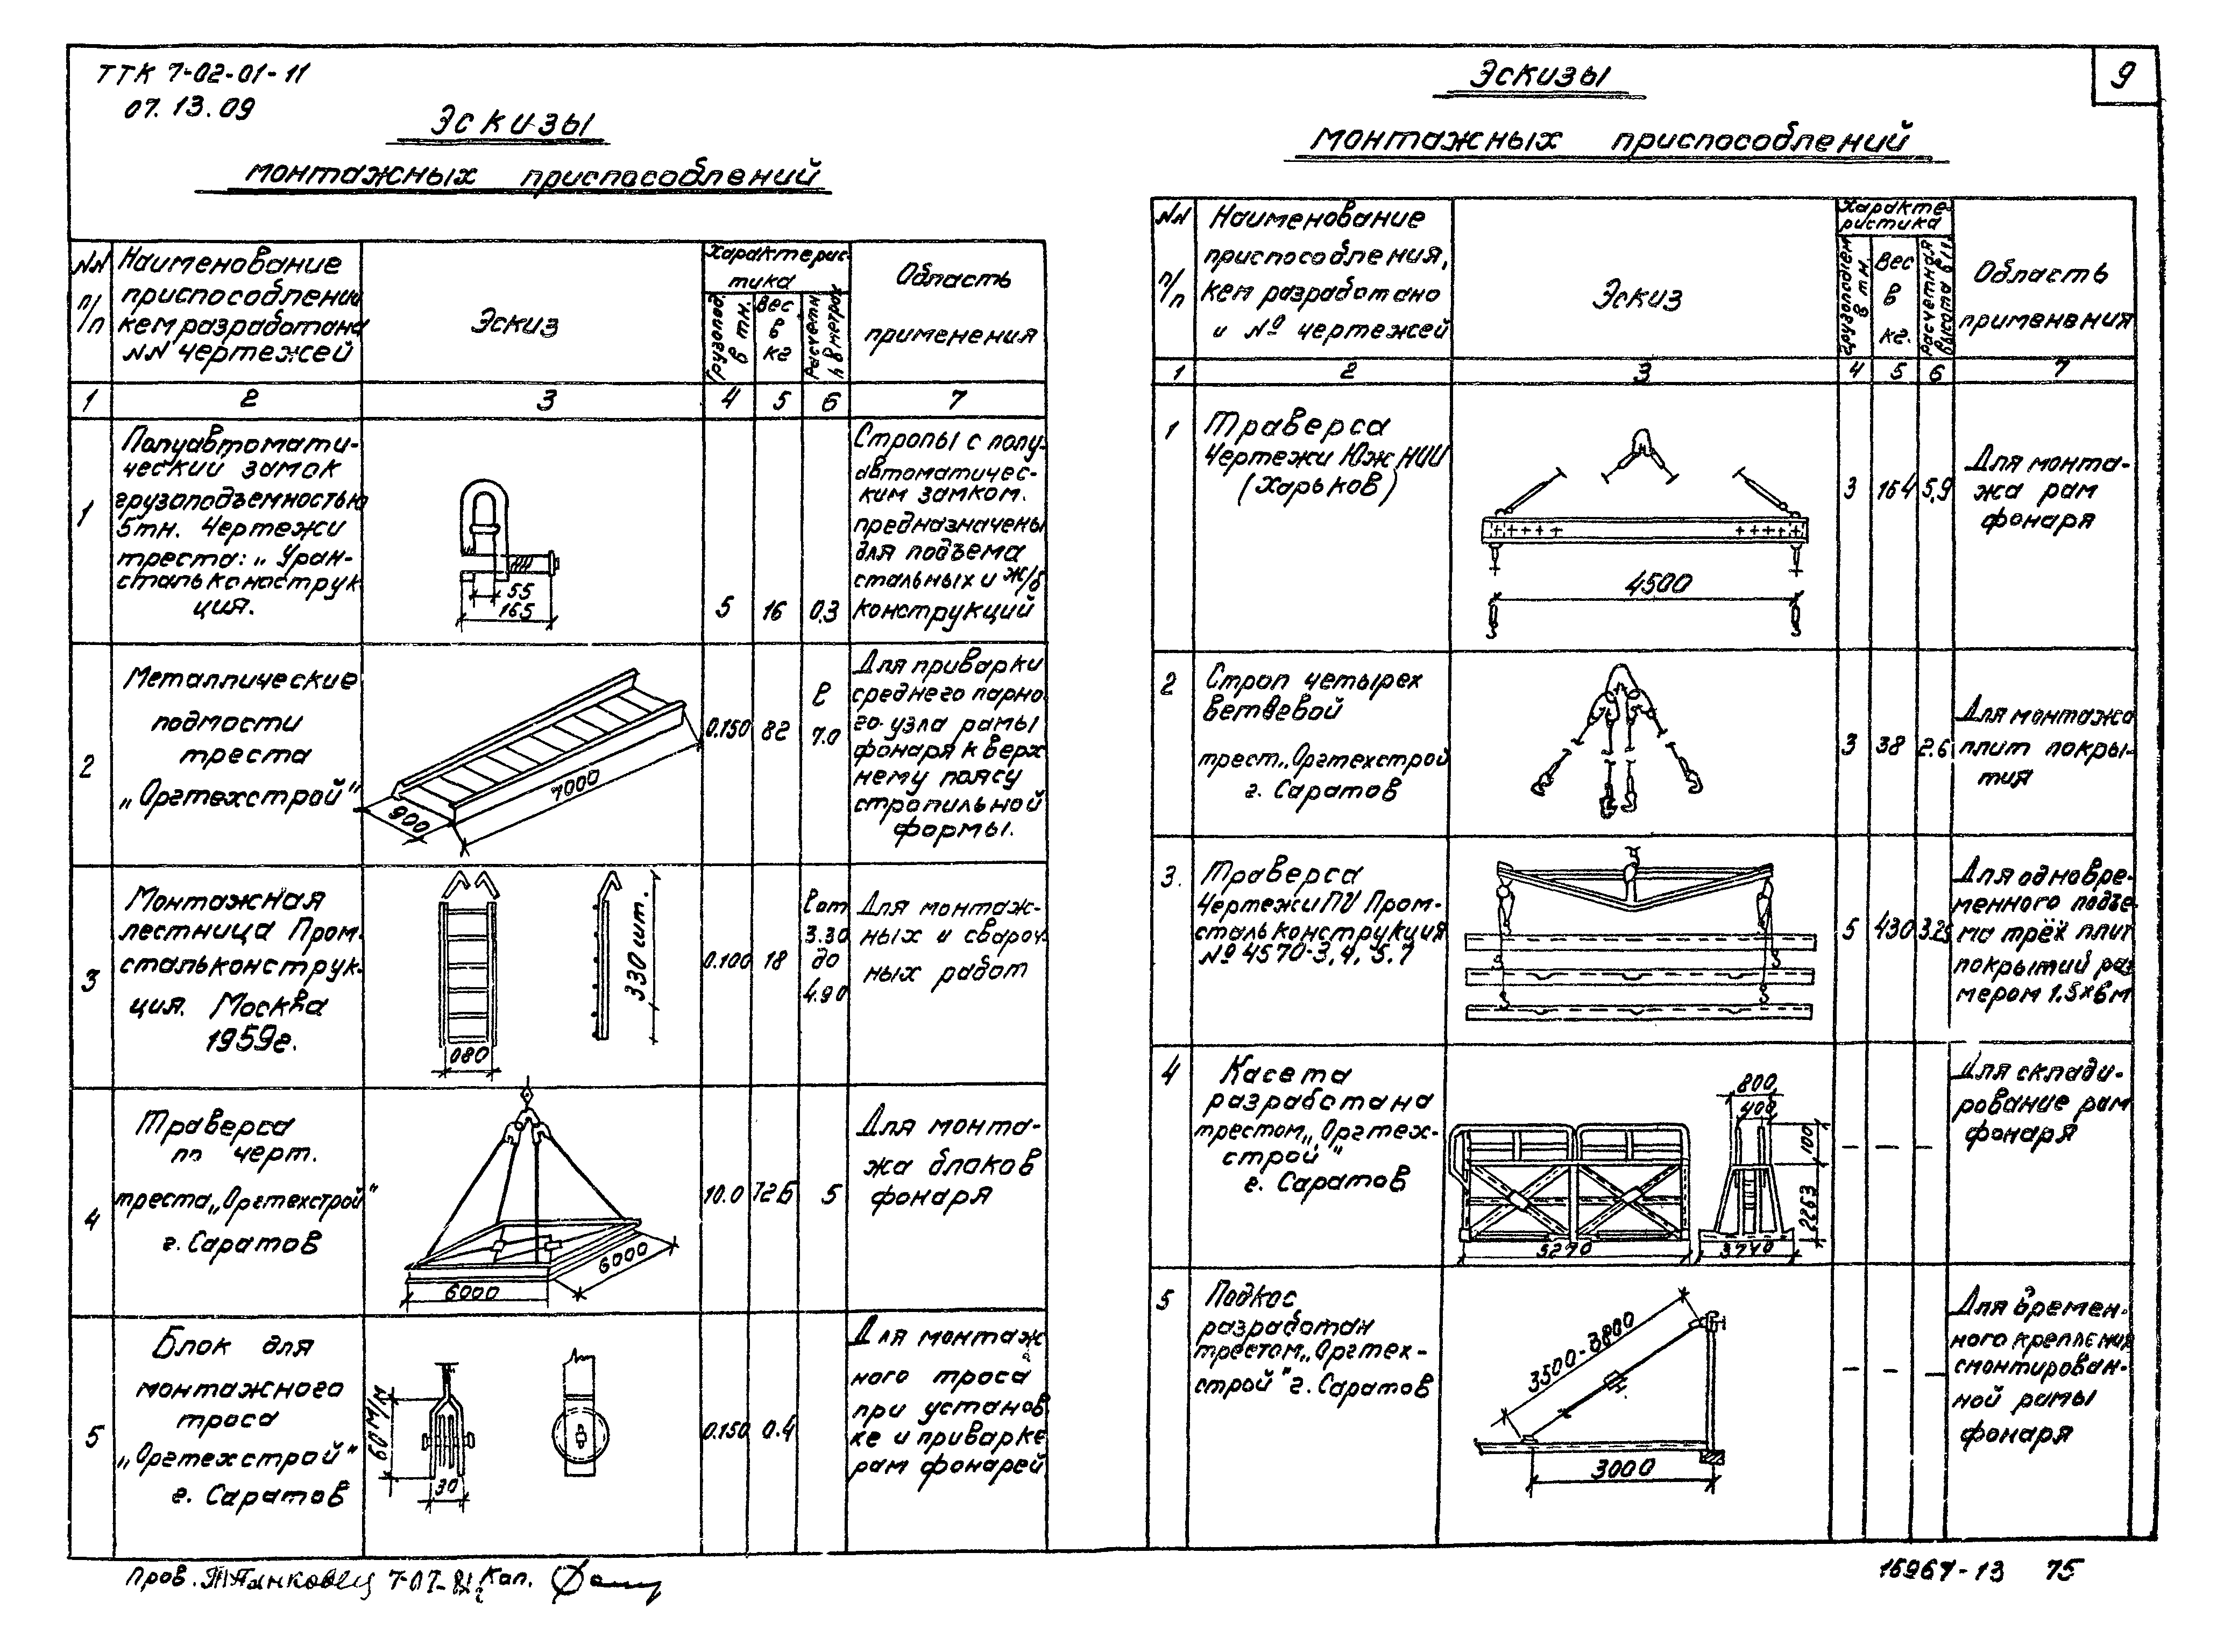 ТТК 7-02-01-11
07.13.09
Эскизы
монтажных приспособлений
NN п/п
Наименование
приспособлении
кем разработана
NN чертежей
Эскиз
Характерис-
тика
Грузопод. в тн.
Вес в кг
Расчетн h в метрах
Область
применения
1 2 3 4 5 6 7
1
Полуавтомати-
ческий замок
грузоподъемностью
5тн. Чертежи
треста: „Уран-
стальконструк
ция.
55
165
5 16 0,3
Стропы с полу-
автоматичес-
ким замком.
предназначены
для подъема
стальных и ж/б
конструкций
2
Металлические
подмости
треста
„Оргтехстрой“
900
7000
0.150 82
ℓ
7.0
Для приварки
среднего парно-
го узла рамы
фонаря к верх
нему поясу
стропильной
формы.
3
Монтажная
лестница Пром-
стальконструк-
ция. Москва
1959г.
080
330 шт.
0.100 18
ℓ от
3.30
до
4.90
Для монтаж-
ных и свароч-
ных работ
4
Траверса
по черт.
треста„Оргтехстрой“
г. Саратов
6000
6000
10.0 726 5
Для монта-
жа блоков
фонаря
5
Блок для
монтажного
троса
„Оргтехстрой“
г. Саратов
60 м/м
30
0.150 0.4
Для монтаж
ного троса
при установ
ке и приварке
рам фонарей
Пров. 7-07-81г Коп.
Эскизы
9
монтажных приспособлений
NN п/п
Наименование
приспособления,
кем разработано
и № чертежей
Эскиз
Характе-
ристика
Грузоподъем в тн.
Вес в кг.
Расчетная высота в м.
Область
применения
1 2 3 4 5 6 7
1
Траверса
Чертежи ЮжНИИ
(Харьков)
4500
3 164 5,9
Для монта-
жа рам
фонаря
2
Строп четырех
ветвевой
трест„Оргтехстрой
г. Саратов
3 38 2.6
Для монтажа
плит покры-
тия
3.
Траверса
Чертежи ПИ Пром-
стальконструкция
№ 4570-3,4,5.7
5 430 3.25
Для одновре-
менного подъе-
ма трёх плит
покрытий раз
мером 1.5×6м
4
Касета
разработана
трестом„Оргтех-
строй“
г. Саратов
5270
800
400
100
2263
3740
– – –
Для склади-
рование рам
фонаря
5
Подкос
разработан
трестом„Оргтех-
строй“ г. Саратов
3500-3800
3000
– – –
Для времен-
ного крепления
смонтирован-
ной рамы
фонаря
15967-13 75